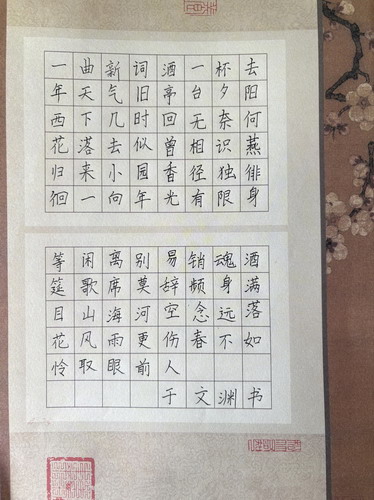 一曲新词酒一杯去
年天气旧亭台夕阳
西下几时回无奈何
花落去似曾相识燕
归来小园香径独徘
徊一向年光有限身
等闲离别易销魂酒
筵歌席莫辞频身满
目山海河空念远落
花风雨更伤春不如
怜取眼前人
于文渊书